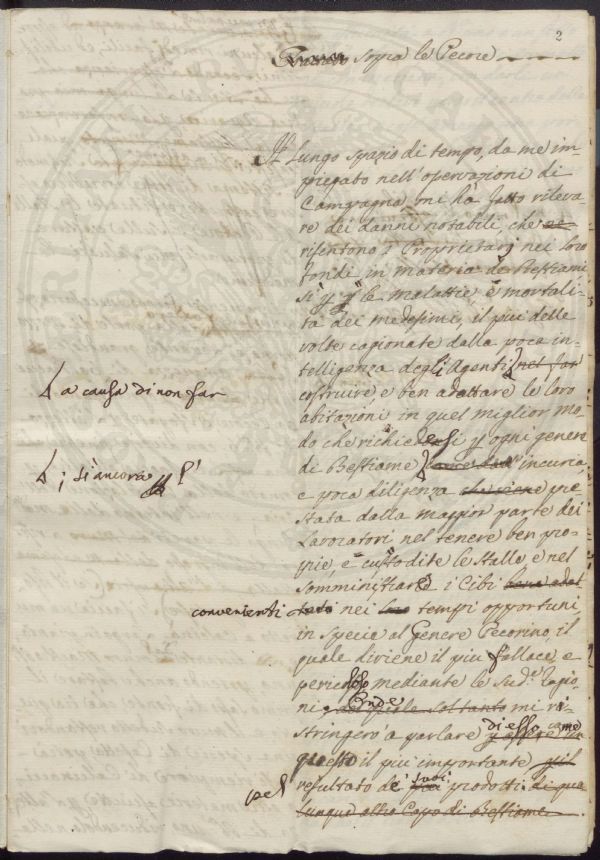 2
Trattato sopra le Pecore
Il Lungo spazio di tempo, da me im-
piegato nell'opervazioni di
Campagna, mi hà fatto rileva-
re dei danni notabili, che
risentono i Proprietarj nei loro
fondi in materia de Bestiami
sì p le malattie, e mortali-
tà dei medesimi, il più delle
volte cagionate dalla poca in-
telligenza degli Agenti nel far
La causa di non far
costruire, e ben adattare le loro
abitazioni in quel miglior mo-
do che richiedesi p ogni genere
di Bestiame, incuria
; sì ancora p l'
e poca diligenza che viene pre-
stata dalla maggior parte dei
Lavoratori nel tenere ben pro-
prie, e custodite le stalle e nel
somministrare i Cibi bene adat-
convenienti tati nei loro tempi opportuni
in specie al Genere Pecorino, il
quale diviene il più fallace, e
pericoloso mediante le Sud.e Cagio-
ni. Onde soltanto mi ri-
stringerò a parlare di esso come
questo il più importante p il
pel
resultato de' suoi prodotti di qua-
lunque altro Capo di Bestiame